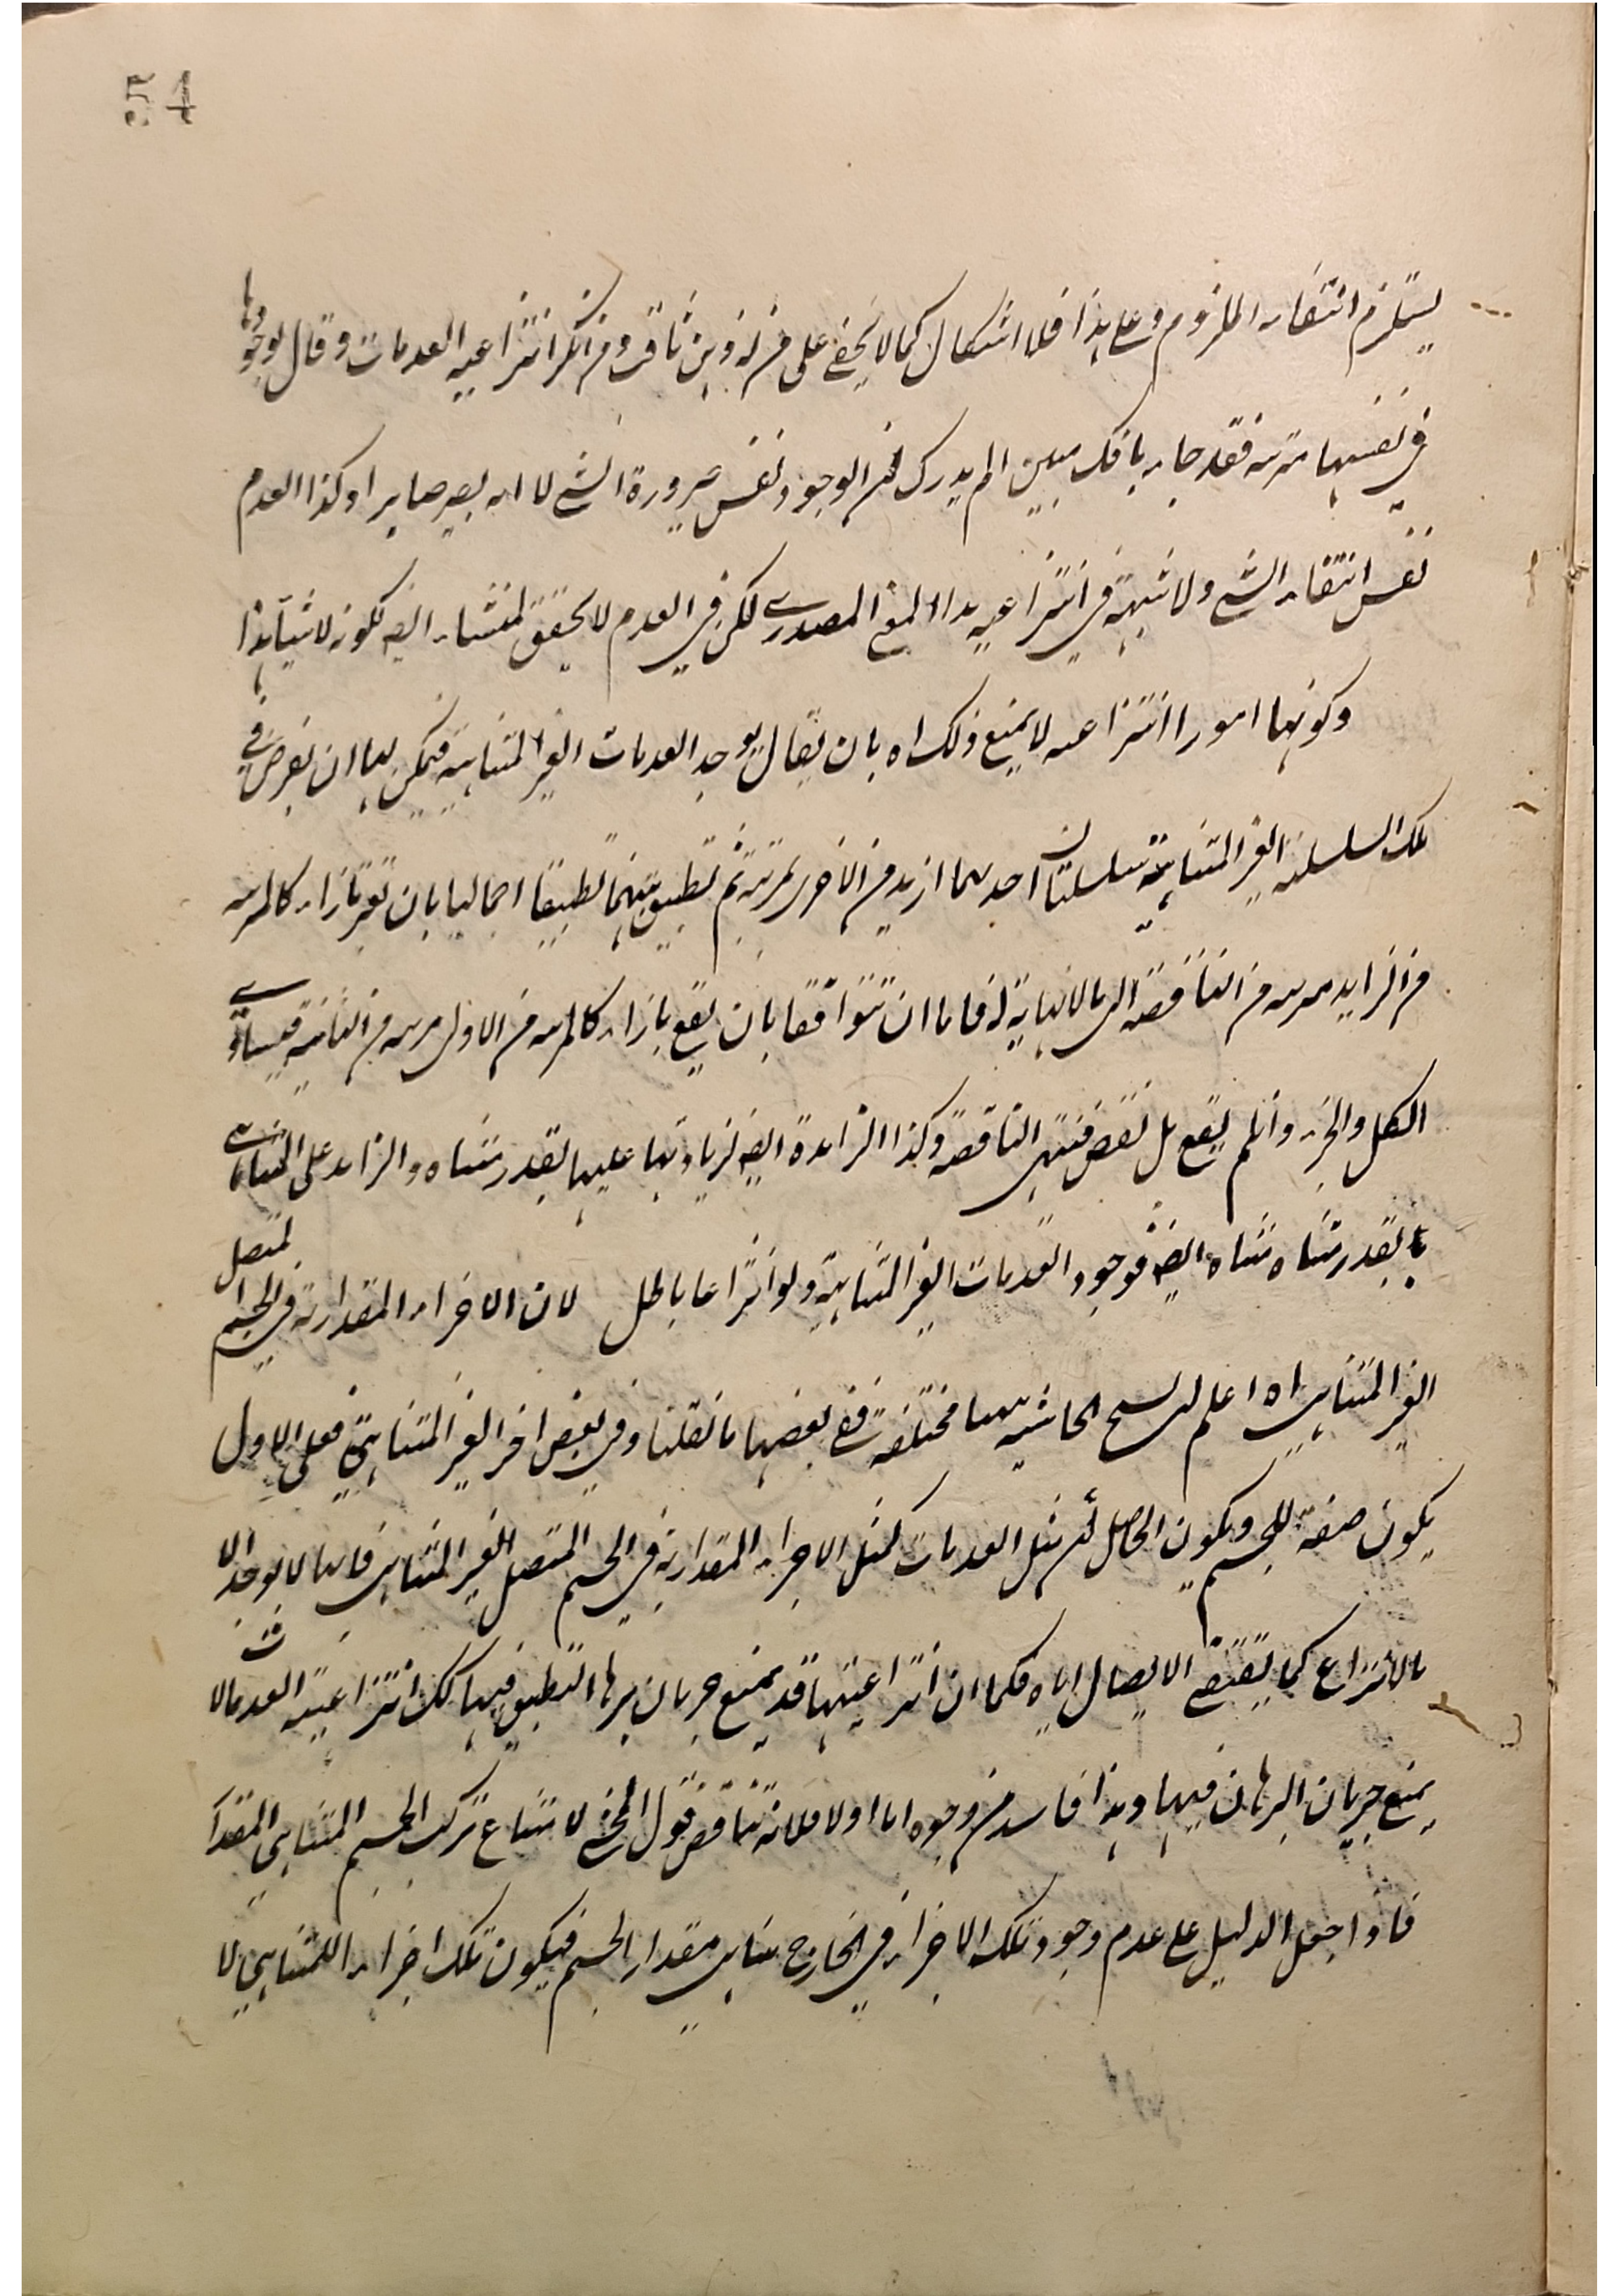 54
يستلزم انتفاء الملزوم وعلى هذا فلا اشكال كما لا يخفى على من له ذهن ثاقب ومن انكر انتزاعية العدمات وقال بوجودها
في نفسها مرتبة فقد جاء بافك مبين الم يدرك ان الوجود نفس صيرورة الشئ لا ما به يصير صايرا وكذا العدم
نفس انتفاء الشئ ولا شبهة في انتزاعية هذا المعنى المصدري لكن في العدم لا يحقق لمنشاء ايضا لكونه لا شيئا هذا
وكونها امورا انتزاعية لا يمنع ذلك اه بان يقال يوجد العدمات الغير المتناهية فيمكن لنا ان نفرض في
تلك السلسلة الغير المتناهية سلسلتان احدهما ازيد من الاخرى بمرتبة ثم نطبق بينهما تطبيقا اجماليا بان نعتبر بازاء كل مرتبة
من الزايد مرتبة من الناقصة الى ما لا نهاية له فاما ان تتوافقا بان يقع بازاء كل مرتبة من الاولى مرتبة من الثانية فيساوي
الكل والجزء وان لم يقع بل نقص فينتهي الناقصة وكذا الزائدة ايضا لزيادتها عليها بقدر متناه والزائد على المتناهي
بقدر متناه متناه ايضا فوجود العدمات الغير المتناهية ولو انتزاعا باطل لان الاجزاء المقدارية في الجسم المتصل
الغير المتناهي اه اعلم ان نسخ الحاشية ههنا مختلفة ففي بعضها ما نقلنا وفي بعض اخر الغير المتناهية فعلى الاول
يكون صفة للجسم ويكون الحاصل ان مثل العدمات كمثل الاجزاء المقدارية في الجسم المتصل الغير المتناهي فانها لا يوجد الا
بالانتزاع كما يقتضي الاتصال اياه فكما ان انتزاعيتها قد يمنع جريان برهان التطبيق فيها كذلك انتزاعية العدمات لا
يمنع جريان البرهان فيها وهذا فاسد من وجوه اما اولا فلانه تناقض قول المحشي لامتناع تركب الجسم المتناهي المقدار
فاذا جعل الدليل على عدم وجود تلك الاجزاء في الخارج تناهي مقدار الجسم فيكون تلك اجزاء المتناهي لا